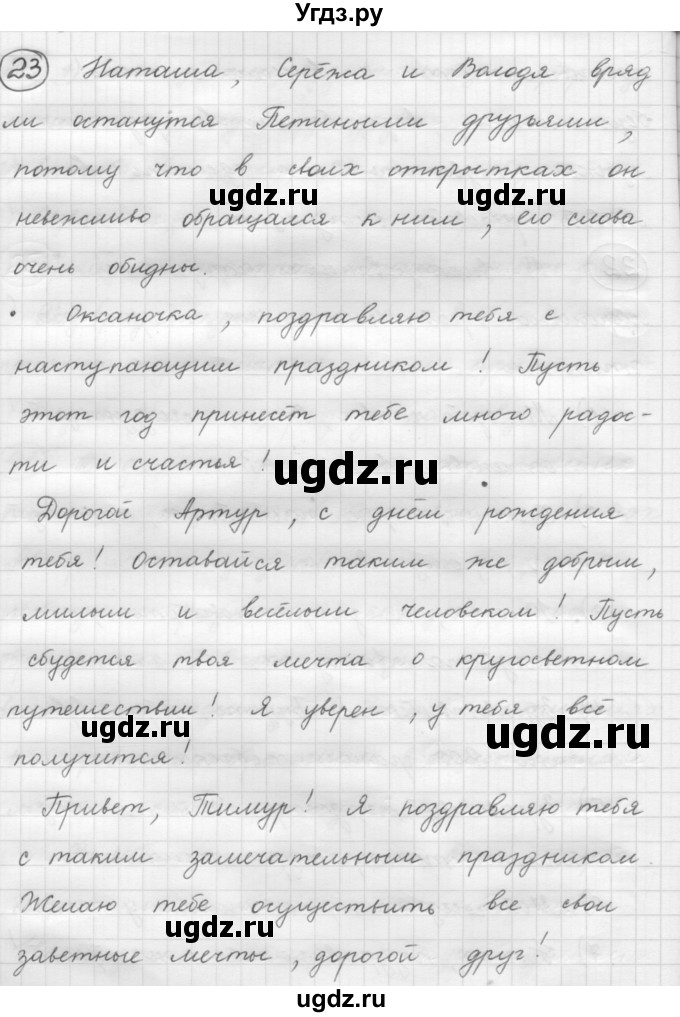 Угдз.ру
23 Наташа, Серёжа и Володя вряд
ли останутся Петиными друзьями,
потому что в своих открытках он
ugdz.ru ugdz.ru
невежливо обращался к ним, его слова
очень обидны.
• Оксаночка, поздравляю тебя с
наступающим праздником! Пусть
этот год принесёт тебе много радос-
ти и счастья!
ugdz.ru
Дорогой Артур, с днём рождения
тебя! Оставайся таким же добрым,
милым и весёлым человеком! Пусть
сбудется твоя мечта о кругосветном
путешествии! Я уверен, у тебя всё
ugdz.ru ugdz.ru
получится!
Привет, Тимур! Я поздравляю тебя
с таким замечательным праздником.
Желаю тебе осуществить все свои
ugdz.ru
заветные мечты, дорогой друг!
ugdz.ru